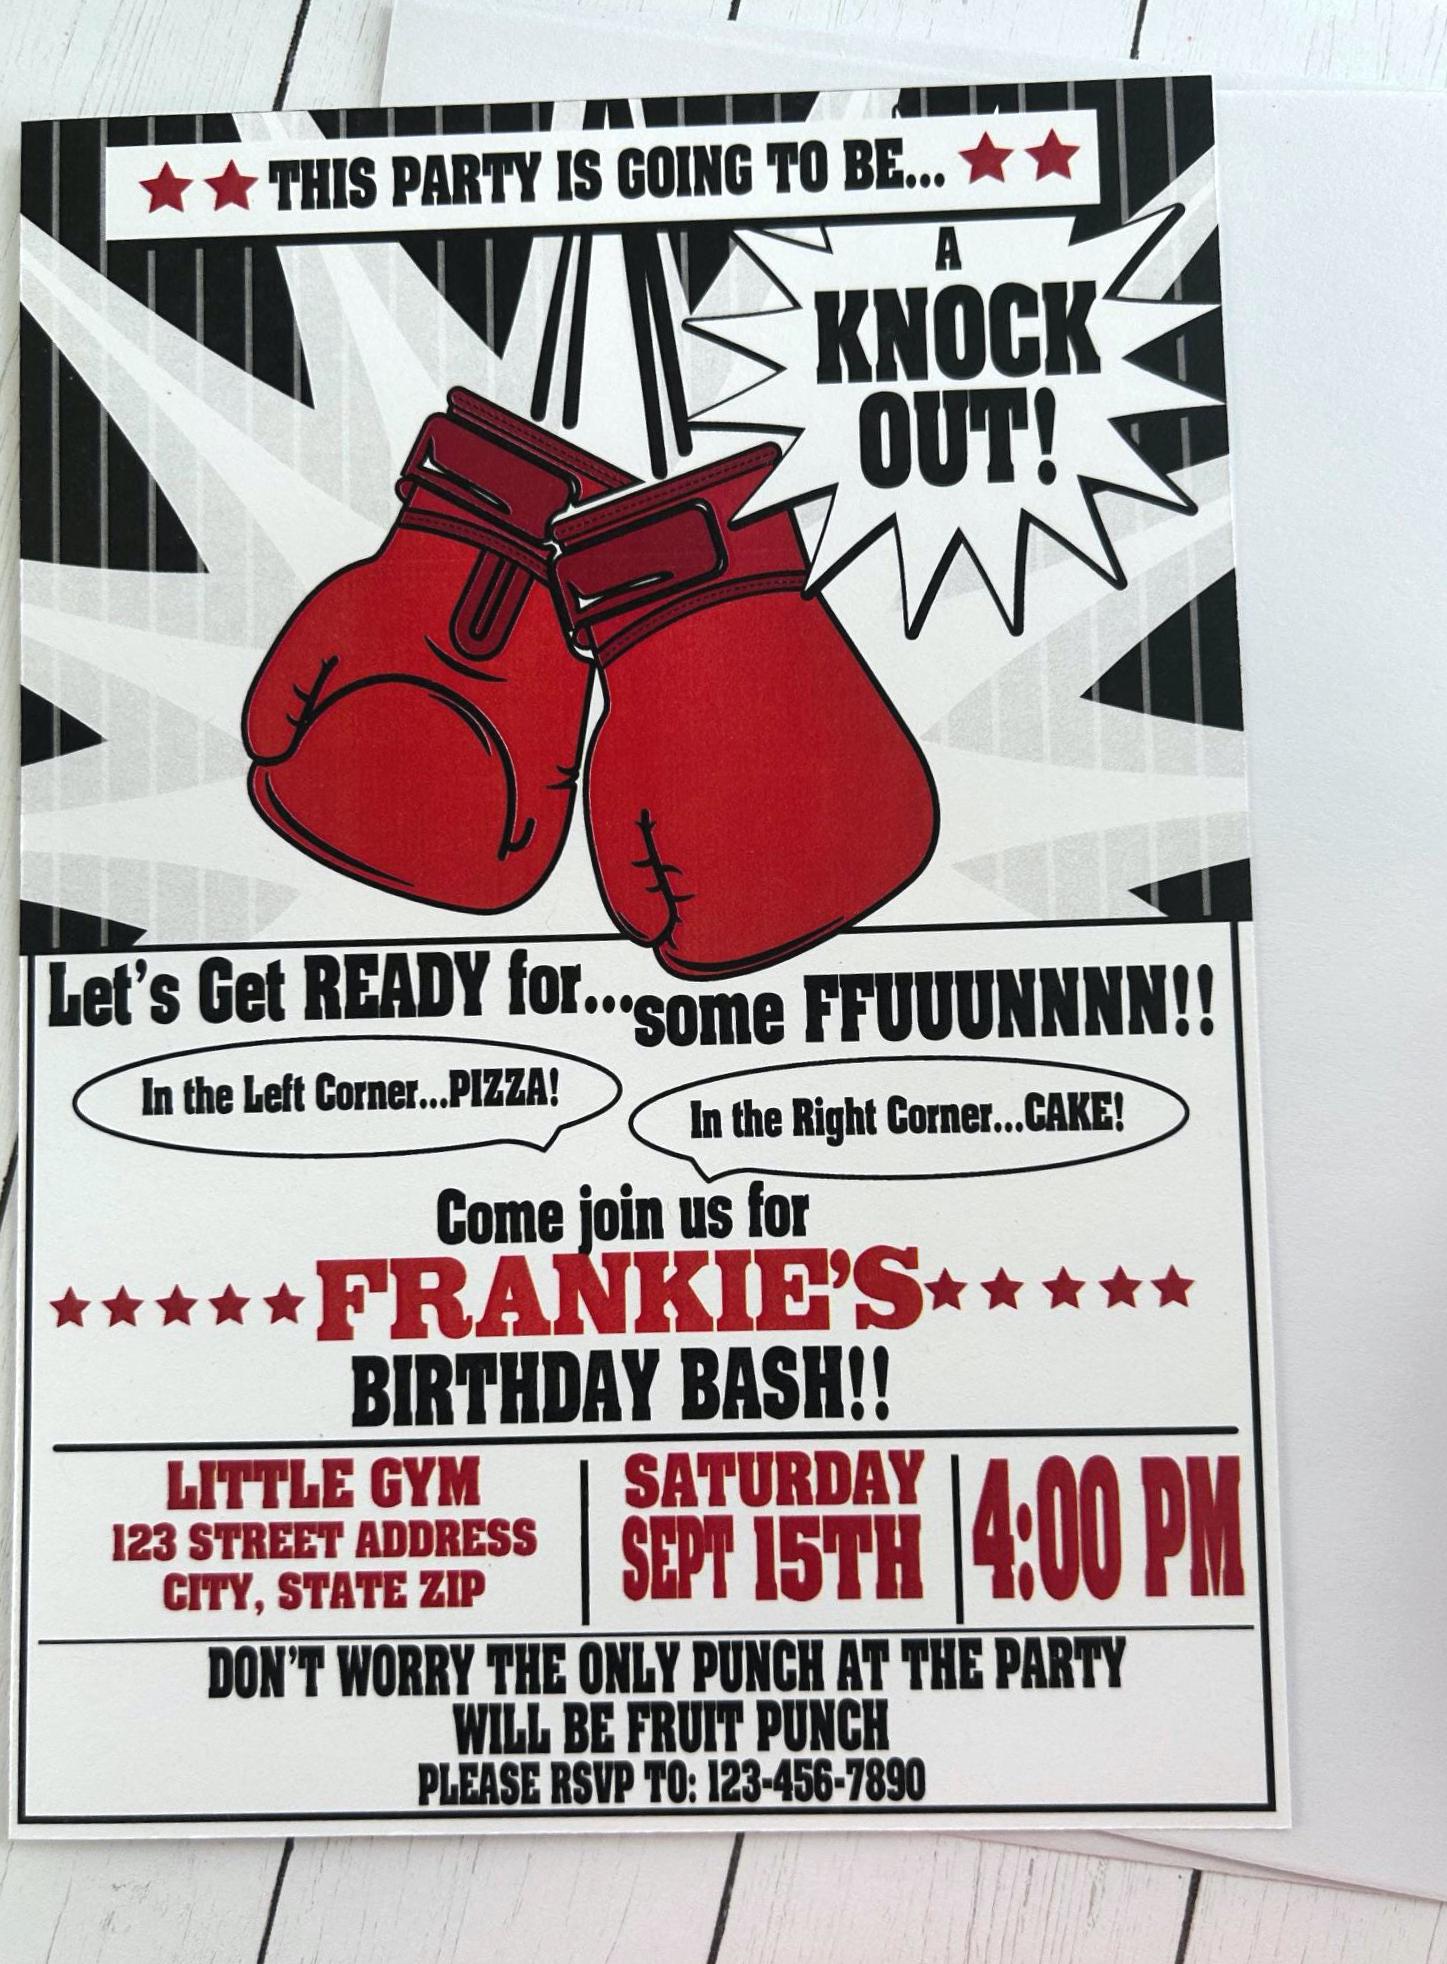 THIS PARTY IS GOING TO BE...
A
KNOCK
OUT!
Let's Get READY for...some FFUUUNNNN!!
In the Left Corner...PIZZA!
In the Right Corner...CAKE!
Come join us for
FRANKIE'S
BIRTHDAY BASH!!
LITTLE GYM
123 STREET ADDRESS
CITY, STATE ZIP
SATURDAY
SEPT 15TH
4:00 PM
DON'T WORRY THE ONLY PUNCH AT THE PARTY
WILL BE FRUIT PUNCH
PLEASE RSVP TO: 123-456-7890